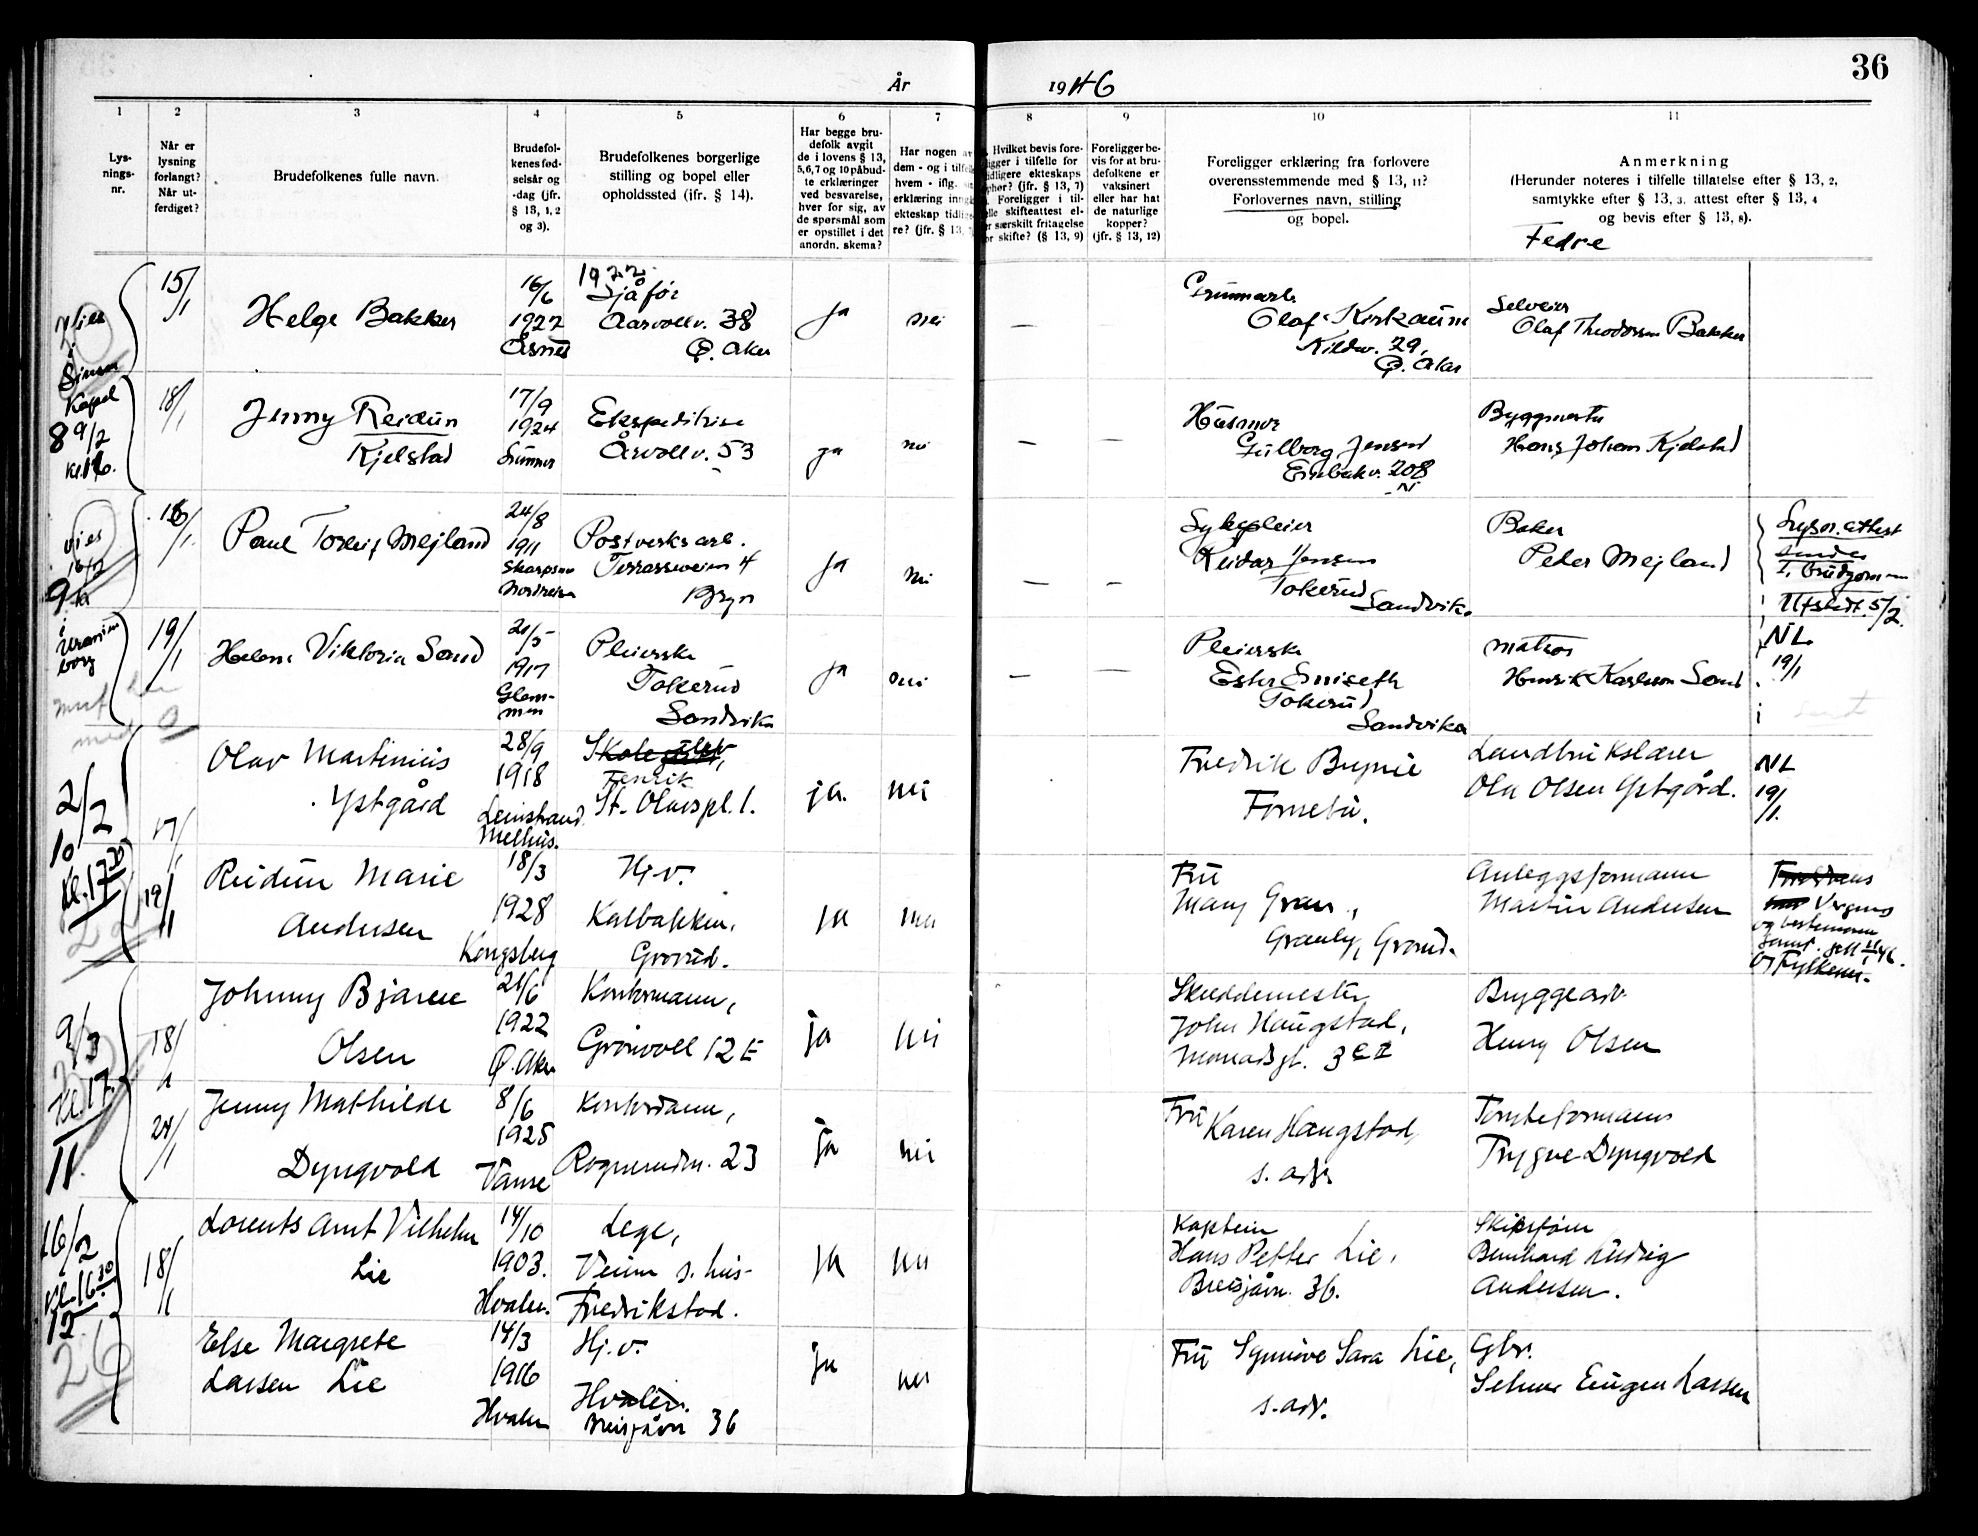 36
År 1946
1
2
3
4
5
6
7
8
9
10
11
Lys-
nings-
nr.
Når er
lysning
forlangt?
Når ut-
ferdiget?
Brudefolkenes fulle navn.
Brudefol-
kenes fød-
selsår og
-dag (jfr.
§ 13, 1, 2
og 3).
Brudefolkenes borgerlige
stilling og bopel eller
opholdssted (ifr. § 14).
Har begge bru-
defolk avgit
de i lovens § 13,
5,6,7 og 10 påbud-
te erklæringer
ved besvarelse,
hver for sig, av
de spørsmål som
er opstillet i det
anordn. skema?
Har nogen av
dem - og i tilfelle
hvem - iflg.
erklæring inngått
ekteskap tidlige-
re? (jfr. § 13,
Hvilket bevis fore-
ligger i tilfelle for
tidligere ekteskaps
ophør? (jfr. § 13, 7)
Foreligger i til-
felle skifteattest el-
er særskilt fritagelse
or skifte? (§ 13, 9)
Foreligger be-
vis for at bru-
defolkene er
vaksinert
eller har hat
de naturlige
kopper?
(jfr. § 13, 12)
Foreligger erklæring fra forlovere
overensstemmende med § 13, 11?
Forlovernes navn, stilling
og bopel.
Anmerkning
(Herunder noteres i tilfelle tillatelse efter § 13, 2,
samtykke efter § 13, 3. attest efter § 13, 4
og bevis efter § 13, 8).
Fedre
7 vies
i
Sinsen
Kapel
9/2
kl. 16.
15/1
Helge Bakker
16/6
1922
Åsnes
1922
Sjåfør
Aarvollv. 38
Ø. Aker
ja
nei
—
—
Grunnarb.
Olaf Kirkaune
Kildev. 29,
Ø. Aker
Selveier
Olaf Theodorsen Bakker
8
18/1
Jenny Reidun
Kjelstad
17/9
1924
Ekspeditrise
Årvollv. 53
ja
nei
—
—
Husmor
Gulborg Jensen
208
Byggmester
Hans Johan Kjelstad
9
vies
16/2
i
Uranien
borg
18/1
Paul Torleif Mejland
24/8
1911
Postverksarb.
Terrasseveien 4
Bryn
ja
nei
—
—
Sykepleier
Reidar Jensen
Tokerud
Sandvika
Baker
Peder Mejland
Lysn. attest
sendes
t. brudgommen
Utstedt. 5/2.
19/1
Helene Viktoria Sand
21/5
1917
Glem-
men
Pleierske
Tokerud
Sandvika
ja
nei
—
—
Pleierske
Ester Eniseth
Tokerud
Sandvika
matros
Henrik Karlsen Sand
NL
19/1
2/2
10
Kl. 17 30
17/1
Olav Martinius
Ystgård
28/9
1918
Leinstrand
Melhus.
Skoleelev,
Fenrik
St. Olavspl. 1.
ja.
nei
Fredrik Brynie
Fornebu.
Landbrukslærer
Ola Olsen Ystgård.
NL
19/1.
19/1
Reidun Marie
Andersen
18/3
1928
Kongsberg
Hj.v.
Kalbakken,
Grorud.
ja
nei
Fru
Mary Gran,
Granly, Grorud.
Anleggsformann
Martin Andersen
Foreldrenes
Vergens
og bestemann
samt.
og Fylkesm.
9/3
Kl. 17.
11.
18/1
Johnny Bjarne
Olsen
21/6
1922
Ø. Aker
Kontormann,
Grönvoll 12 E
ja
nei
Skreddermester
John Haugstad,
Monradsgt. 3
Bryggearb.
Henry Olsen
21/1
Jenny Mathilde
Dyngvold
8/6
1925
Vanse
Kontordame,
Rognerudv. 23
ja
nei
Fru
Karen Haugstad,
s. adr.
Tomteformann
Trygve Dyngvold
16/2
Kl. 16.30
12.
26
18/1
Lorents Arnt Vilhelm
Lie
14/10
1903.
Hvaler.
Lege,
Veum s. hus-
Fredrikstad.
ja
nei
Kaptein
Hans Petter Lie,
Breisjåvn. 36.
Skipsfører
Bernhard Ludvig
Andersen.
Else Margrete
Larsen Lie
14/3
1916
Hvaler
Hj.v.
Hvaler.
Breisjåvn 36
ja
nei
Fru Synnöve Sara Lie,
s. adr.
Gbr.
Selmer Eugen Larsen